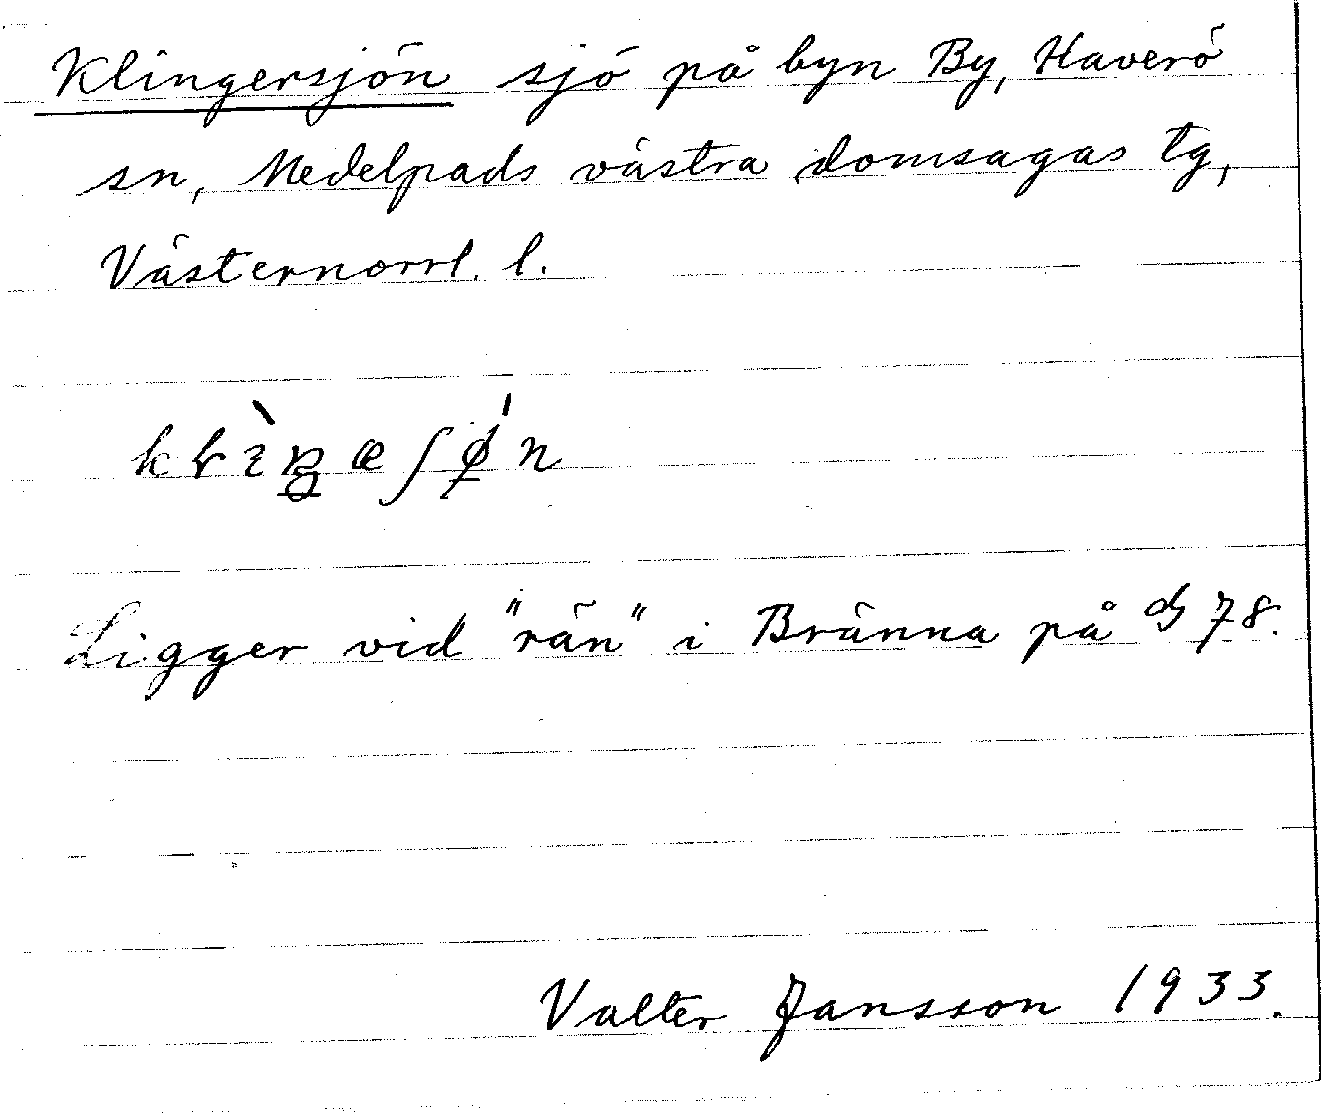 Klingersjön sjö på byn By, Haverö
sn, Medelpads västra domsagas tg,
Västernorrl. l.
Ligger vid "rän" i Bränna på 78.
Valter Jansson 1933.